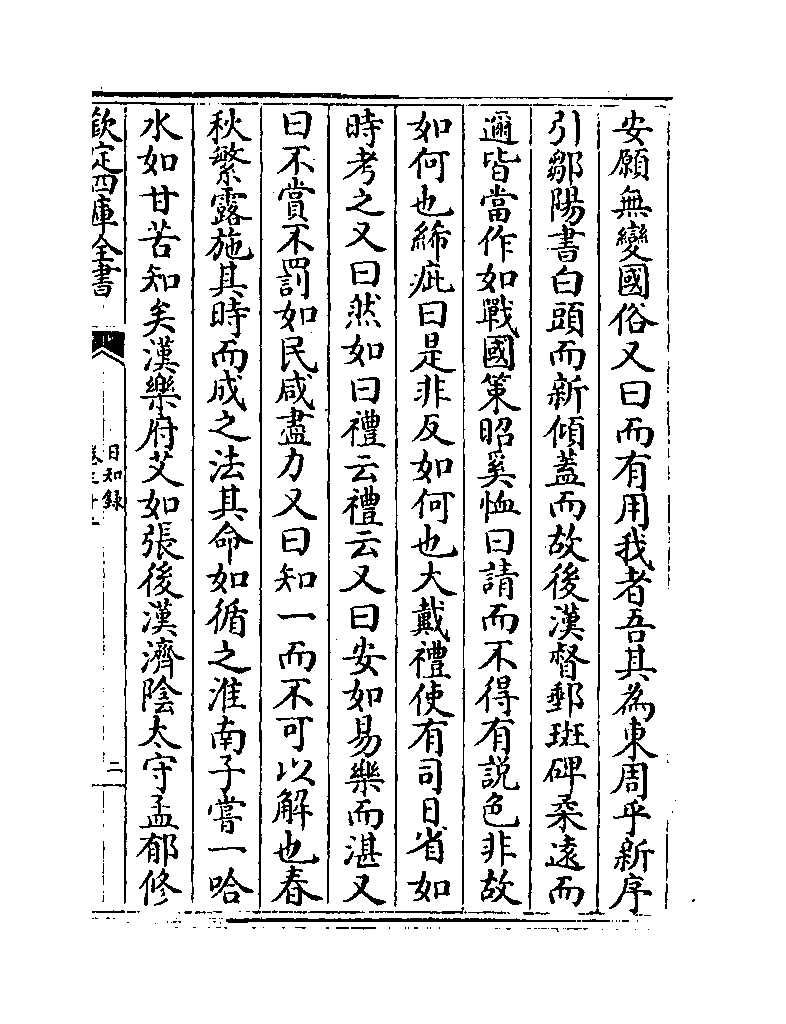 安願無變國俗又曰而有用我者吾其為東周乎新序
引鄒陽書白頭而新傾蓋而故後漢督郵斑碑柔遠而
邇皆當作如戰國策昭奚恤曰請而不得有説色非故
如何也絺疵曰是非反如何也大戴禮使有司日省如
時考之又曰然如曰禮云禮云又曰安如易樂而湛又
曰不賞不罰如民咸盡力又曰知一而不可以解也春
秋繁露施其時而成之法其命如循之淮南子嘗一哈
水如甘苦知矣漢樂府艾如張後漢濟陰太守孟郁修
欽定四庫全書
日知録
卷三十二
二